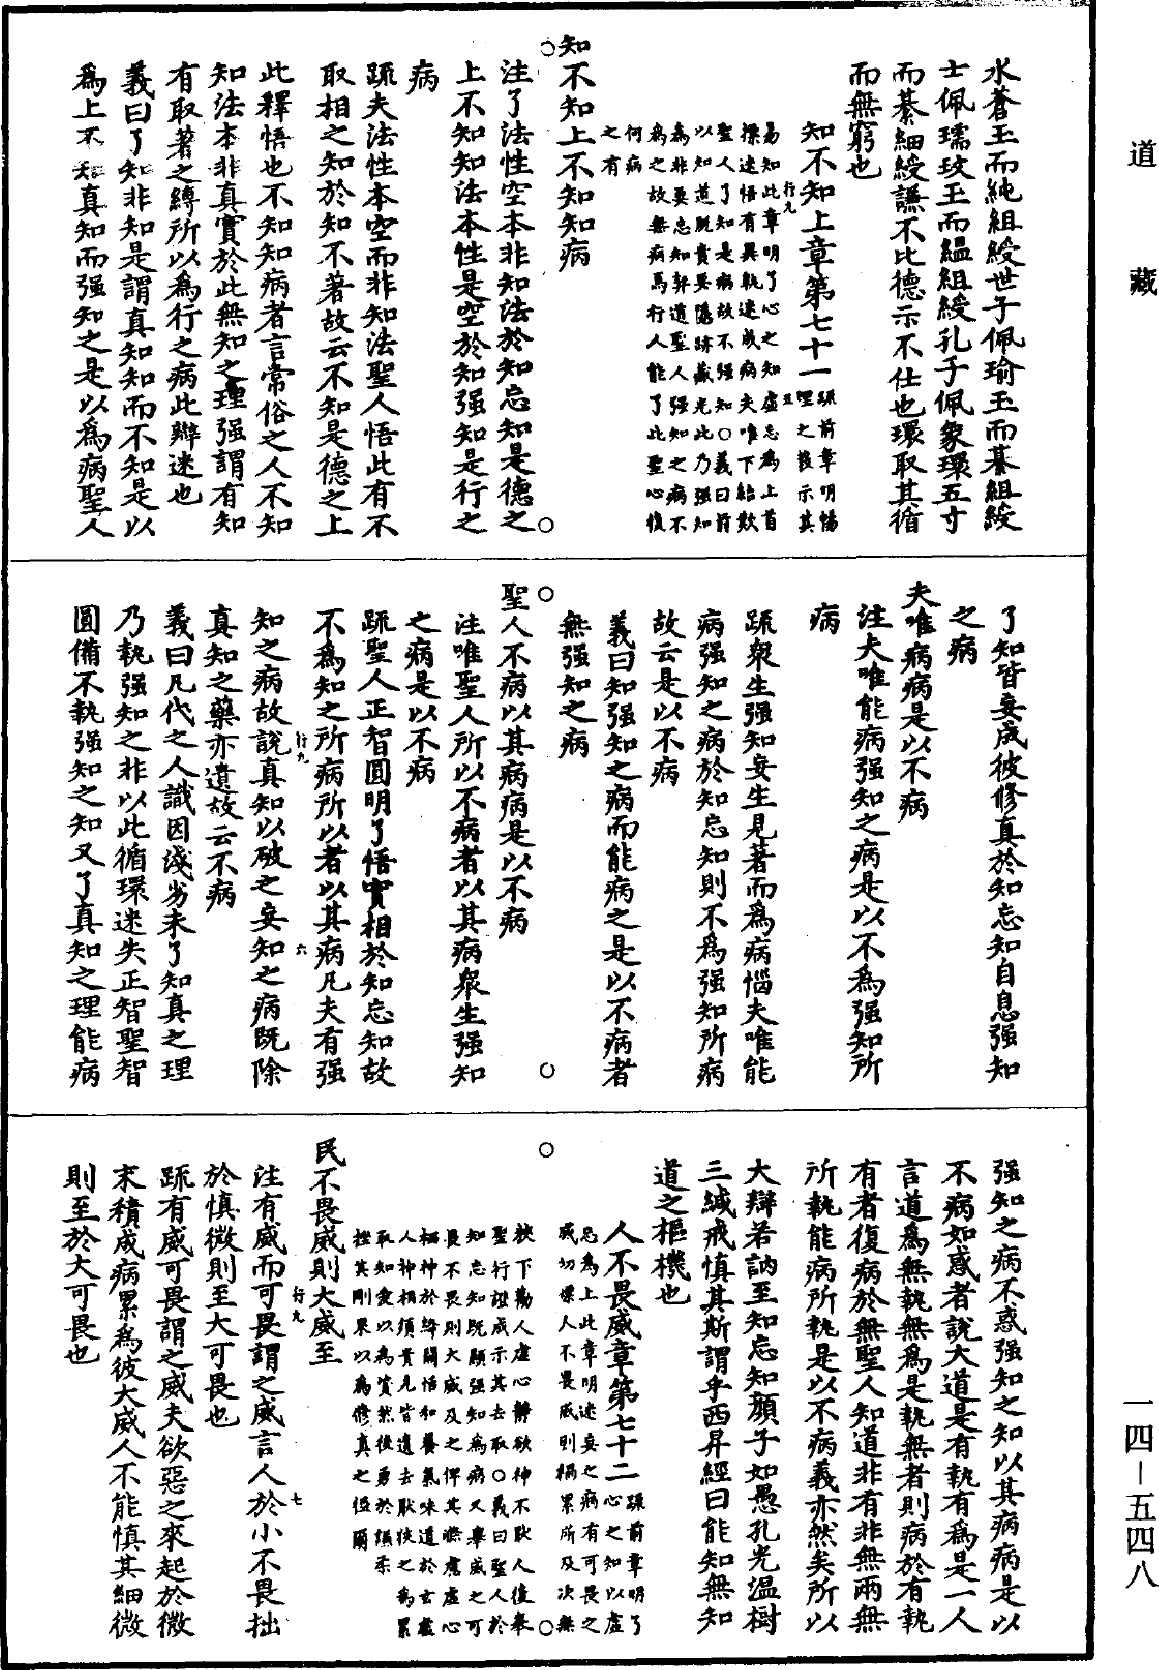 道藏
水蒼玉而純組綬世子佩瑜玉而綦組綬
士佩瓀玟玉而縕組綬孔子佩象環五寸
而綦組綬謙不比德示不仕也環取其循
而無窮也
知不知上章第七十一
疏前章明暢
理之旨示其
易知此章明了心之知虛忘為上首
標迷悟有異執迷成病夫唯下結歎
聖人了知是病故不强知○義曰前
以知道既貴要隱跡藏光此乃强知
為非要忘知辭遣聖人强知之病不
為之故無病焉行人能了此聖心復
何病
之有
知不知上不知知病
注了法性空本非知法於知忘知是德之
上不知知法本性是空於知强知是行之
病
疏夫法性本空而非知法聖人悟此有不
取相之知於知不著故云不知是德之上
此釋悟也不知知病者言常俗之人不知
知法本非真實於此無知之理强謂有知
有取著之縛所以為行之病此辯迷也
義曰了知非知是謂真知知而不知是以
為上不知真知而强知之是以為病聖人
了知皆妄成彼修真於知忘知自息强知
之病
夫唯病病是以不病
注夫唯能病强知之病是以不為强知所
病
疏衆生强知妄生見著而為病惱夫唯能
病强知之病於知忘知則不為强知所病
故云是以不病
義曰知强知之病而能病之是以不病者
無强知之病
聖人不病以其病病是以不病
注唯聖人所以不病者以其病衆生强知
之病是以不病
疏聖人正智圓明了悟實相於知忘知故
不為知之所病所以者以其病凡夫有强
知之病故說真知以破之妄知之病既除
真知之藥亦遣故云不病
義曰凡代之人識因淺劣未了知真之理
乃執强知之非以此循環迷失正智聖智
圓備不執强知之知又了真知之理能病
强知之病不惑强知之知以其病病是以
不病如惑者說大道是有執有為是一人
言道為無執無為是執無者則病於有執
有者復病於無聖人知道非有非無兩無
所執能病所執是以不病義亦然矣所以
大辯若訥至知忘知顔子如愚孔光溫樹
三緘戒慎其斯謂乎西昇經曰能知無知
道之樞機也
人不畏威章第七十二
疏前章明了
心之知以虛
忘為上此章明迷妄之病有可畏之
威切標人不畏威則禍累所及次無
狹下勸人虛心靜欲神不耿人後奉
聖行證成示其去取○義曰聖人於
知忘知既顯强知為病又舉威之可
畏不畏則大威及之俾其滌慮虛心
栖神於絳闕恬和養氣味道於玄虛
人神相須貴見皆遺去耿狹之為累
取知愛以為資然後勇於謙柔
挫其剛果以為修真之徑爾
民不畏威則大威至
注有威而可畏謂之威言人於小不畏拙
於慎微則至大可畏也
疏有威可畏謂之威夫欲惡之來起於微
末積成病累為彼大威人不能慎其細微
則至於大可畏也
行九
五
行九
六
行九
七
一四—五四八